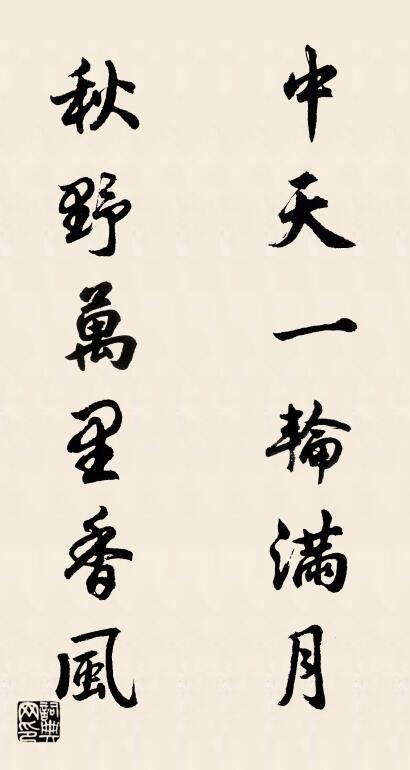 中天一輪滿月
秋野萬里香風
詞典網印